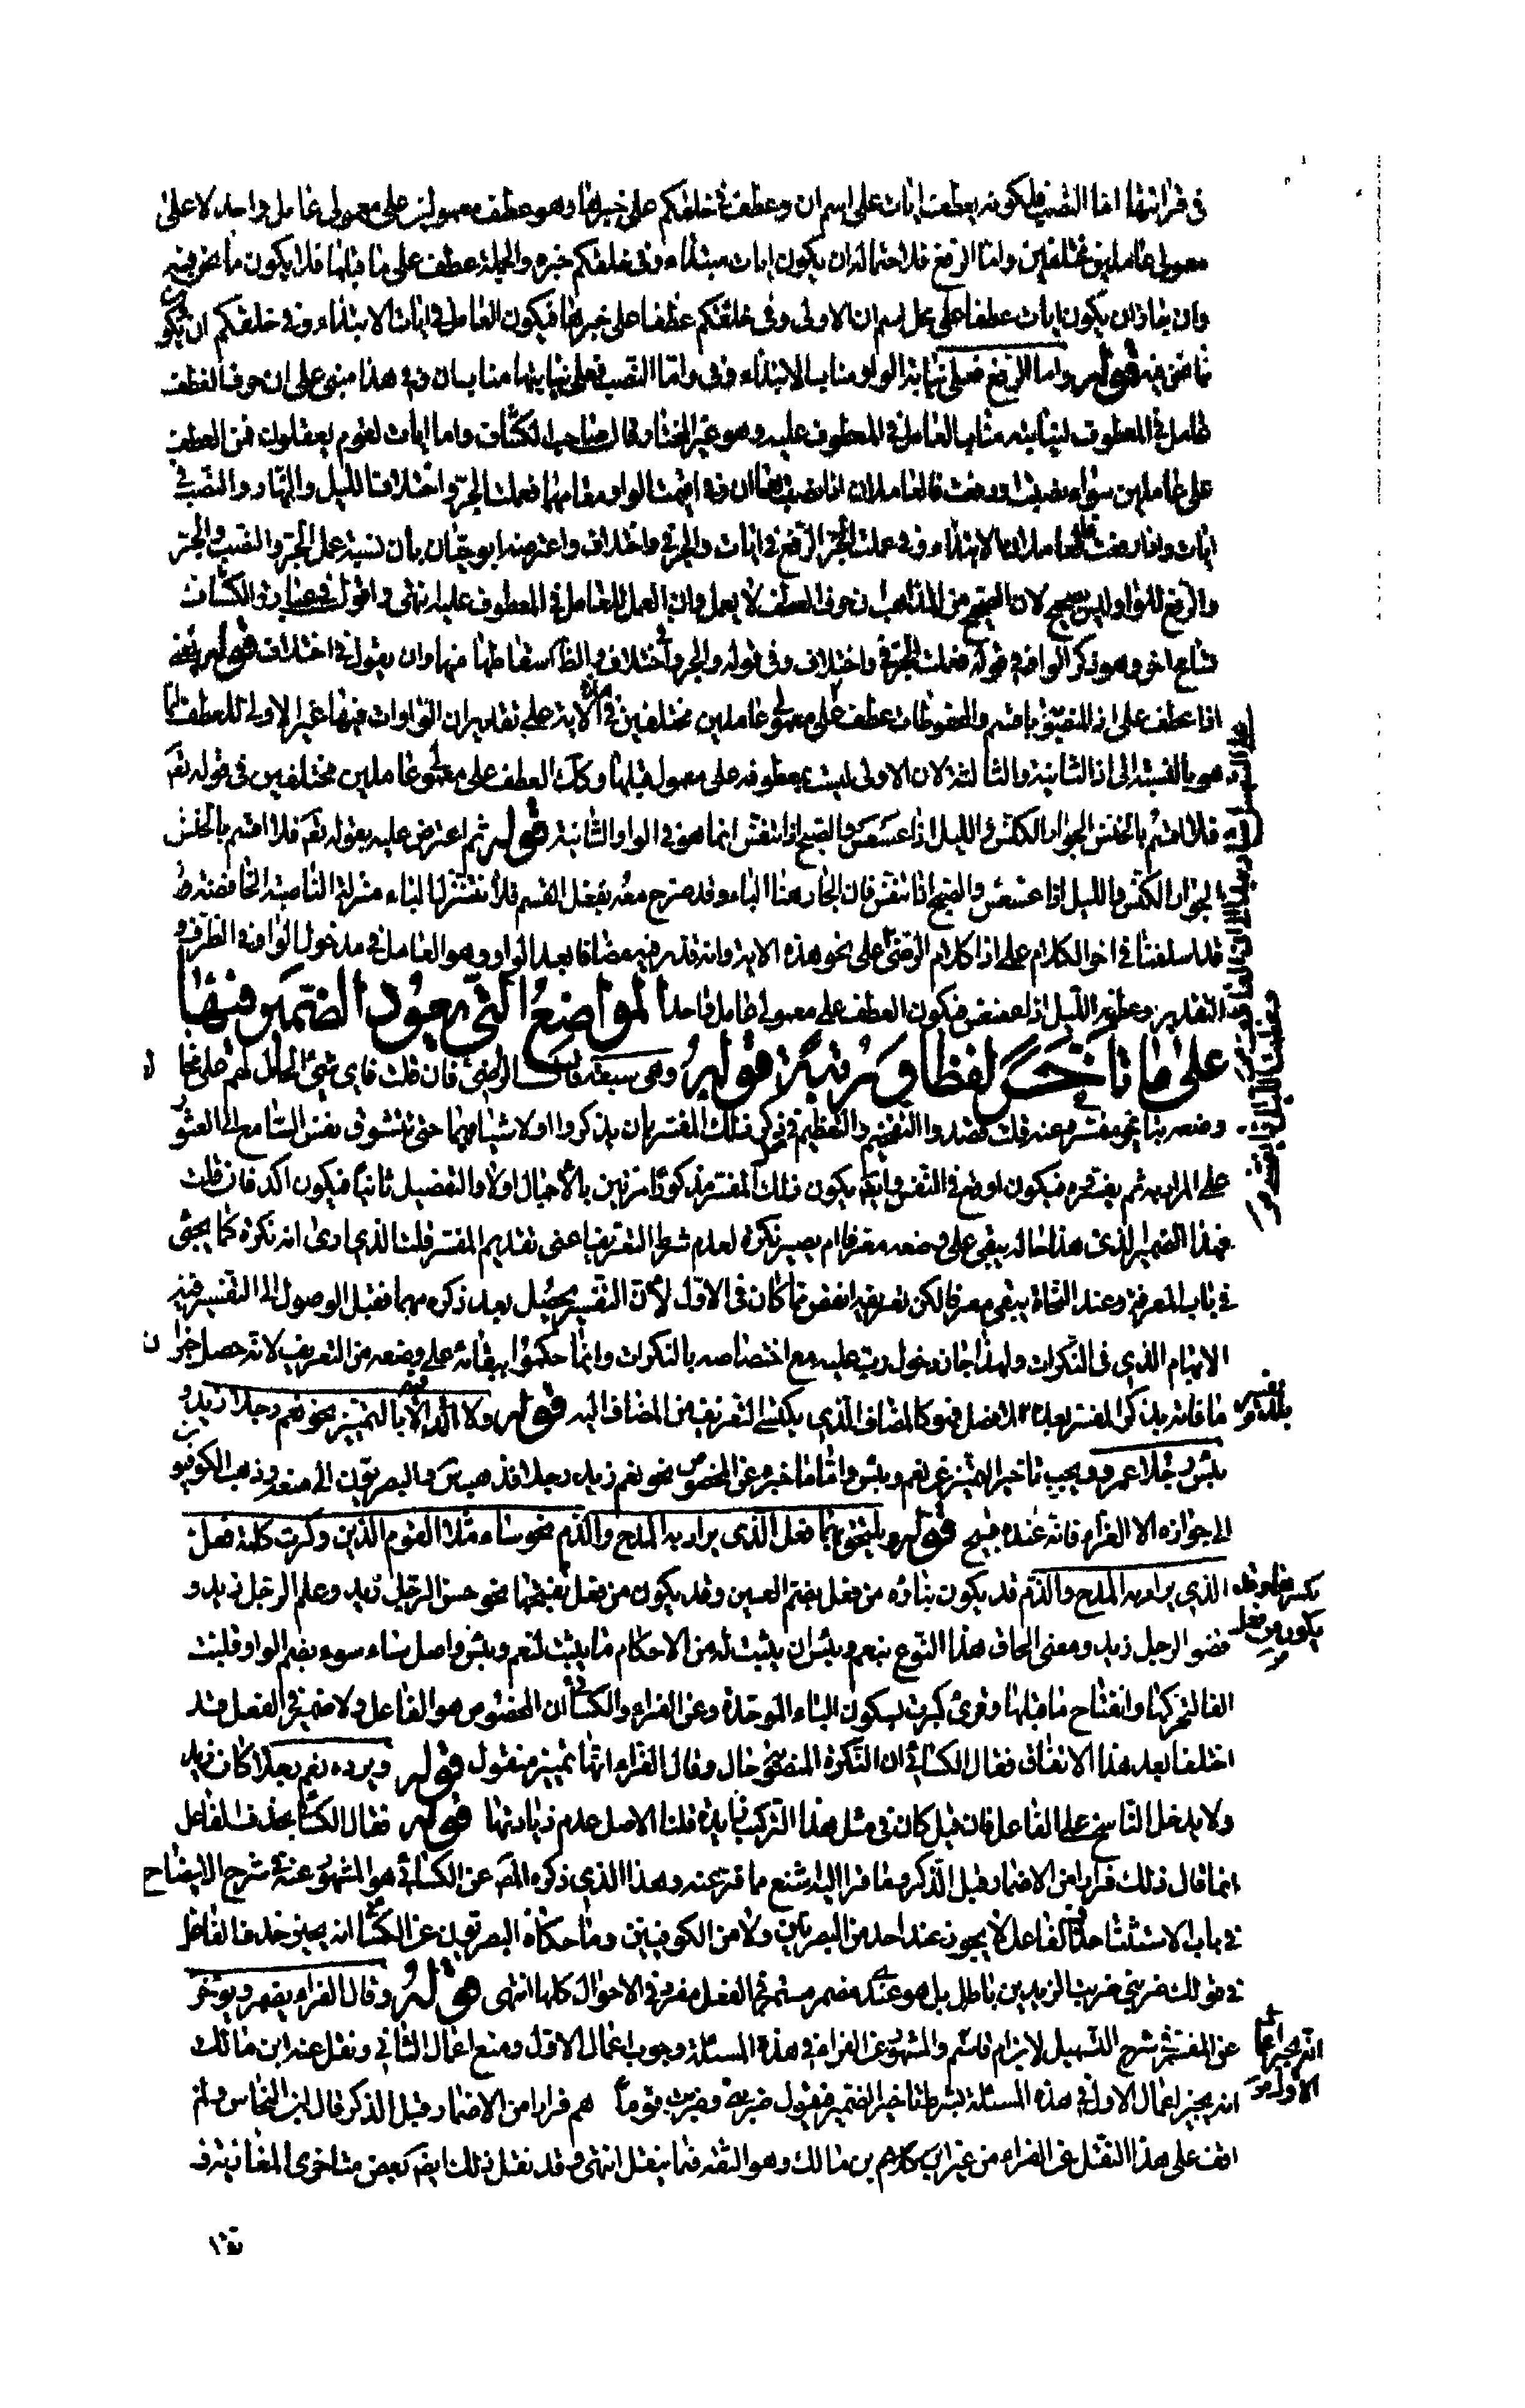 في قرائتها اما النصب فلكونه بعطف ايات على اسم ان وعطف في خلقكم على خبرها وهو عطف معمولين على معمولي عامل واحد لا على
معمولي عاملين مختلفين واما الرفع فلاحتماله ان يكون ايات مبتداء وفي خلقكم خبره والجملة عطف على ما قبلها فلا يكون ما نحن فيه
وان جاز ان يكون ايات عطفا على محل اسم ان الاولى وفي خلقكم عطفا على خبرها فيكون العامل في ايات الابتداء وفي خلقكم ان
مما نحن فيه قوله واما الرفع فعلى نيابة الواو مناب الابتداء وفي واما النصب فعلى نيابتها مناب ان وفي هذا مبنى على ان حرف العطف
عامل في المعطوف لنيابته مناب العامل في المعطوف عليه وهو غير المختار وقال صاحب الكشاف واما ايات لقوم يعقلون فمن العطف
على عاملين سواء نصبت او رفعت فالعاملان اذا نصبت هما ان وفي اقيمت الواو مقامهما فعملت الجر واختلاف الليل والنهار والنصب في
ايات واذا رفعت فالعاملان الابتداء وفي عملت الرفع في ايات والجر في واختلاف واعترضه ابو حيان بان نسبة عمل الجر والنصب والجر
والرفع للواو ليس بصحيح لان الصحيح من المذاهب ان حرف العطف لا يعمل وان العمل للعامل في المعطوف عليه انتهى واقول في عبارة الكشاف
تسامح اخر وهو ذكر الواو في قوله فعملت الجر في واختلاف وفي قوله والجر في واختلاف والظ اسقاطها منهما وان يقول في اختلاف قوله
اذا عطف على اذ المنصوبة باقسم والمخفوضات عطف على معمولي عاملين مختلفين في الاية على تقدير ان الواوات فيها غير الاولى للعطف انما
هو بالنسبة الى اذا الثانية والثالثة لان الاولى ليست بمعطوفة على معمول قبلها وكذا العطف على معمولي عاملين مختلفين في قوله تعم
فلا اقسم بالخنس الجوار الكنس والليل اذا عسعس والصبح اذا تنفس انما هو في الواو الثانية قوله ثم اعترض عليه بقوله تعم فلا اقسم بالخنس
الجوار الكنس والليل اذا عسعس والصبح اذا تنفس فان الجار هنا الباء وقد صرح معه بفعل القسم فلا تنزل الباء منزلة الناصبة الخافضة
قد اسلفنا في اخر الكلام على اذا كلام الرضي على نحو هذه الاية وانه قدر فيه مضافا بعد الواو وهو العامل في مدخول الواو في الظرف و
التقدير وعظمة الليل اذا عسعس فيكون العطف على معمولي عامل واحد المواضع التي يعود الضمير فيها
على ما تاخر لفظا ورتبة قوله وهي سبعة قال الرضي فان قلت فاي شيء الحامل لهم على
وضعه بتاخير مفسره عنه قلت قصدوا التفخيم والتعظيم في ذكر ذلك المفسر بان يذكروا اولا شيئا مبهما حتى تتشوق نفس السامع الى العثور
على المراد به ثم يفسره فيكون اوقع في النفس وايضا يكون ذلك المفسر مذكورا مرتين بالاجمال اولا والتفصيل ثانيا فيكون اكد فان قلت
فهذا الضمير الذي هذا حاله يبقى على وضعه معرفا ام يصير نكرة لعدم شرط التعريف اعني تقديم المفسر قلت الذي ارى انه نكرة كما يجيء
في باب المعرفة وعند النحاة يبقى معرفا لكن تعريفه انقص مما كان في الاول لان التفسير يحصل بعد ذكره مبهما فقبل الوصول الى التفسير فيه
الابهام الذي في النكرات ولهذا جاز دخول رب عليه مع اختصاصه بالنكرات وانما حكموا ببقائه على وضعه من التعريف لانه حصل
ما فاته بذكر المفسر بعده بلا فصل فهو كالمضاف الذي يكتسي التعريف من المضاف اليه قوله ولا الا بالتمييز نحو نعم رجلا زيد و
بئس رجلا عمرو ويجب تاخير التمييز عن نعم وبئس واما تاخيره عن المخصوص نحو نعم زيد رجلا فذهب س والبصريون الى منعه وذهب الكوفيون
الى جوازه الا الفراء فانه عنده قبيح قوله ويلتحق بهما فعل الذي يراد به المدح والذم نحو ساء مثلا القوم الذين وكبرت كلمة فعل
الذي يراد به المدح والذم قد يكون بناؤه من فعل بضم العين وقد يكون من فعل بفتحها نحو حسن الرجل زيد وعلم الرجل زيد و
قضو الرجل زيد ومعنى الحاق هذا النوع بنعم وبئس ان يثبت له من الاحكام ما يثبت لنعم وبئس واصل ساء سوء بضم الواو قلبت
الفا لتحركها وانفتاح ما قبلها وقرئ كبرت بسكون الباء الموحدة وعن الفراء والكسائي ان المخصوص هو الفاعل ولا ضمير في الفعل
اختلفا بعد هذا الاتفاق فقال الكسائي ان النكرة المنصوبة حال وقال الفراء انها تمييز منقول قوله ويرده نعم رجلا كان زيد
ولا يدخل الناسخ على الفاعل فان قيل كان في مثل هذا التركيب زايدة قلنا الاصل عدم زيادتها قوله فقال الكسائي بحذف الفاعل
انما قال ذلك فرارا من الاضمار قبل الذكر وما فر اليه اشنع مما فر عنه وهذا الذي ذكره المص عن الكسائي هو المشهور عنه وفي شرح الايضاح
في باب الاستثناء حذف الفاعل لا يجوز عند احد من البصريين ولا من الكوفيين وما حكاه البصريون عن الكسائي انه يجيز حذف الفاعل
في قولك ضربني وضربت الزيدين باطل بل هو عنده مضمر مستتر في الفعل مفرد في الاحوال كلها انتهى قوله وقال الفراء يضمر ويؤخر
عن المفسر في شرح التسهيل لابن ام قاسم والمشهور عن الفراء في هذه المسئلة وجوب اعمال الاول ومنع اعمال الثاني ونقل عنه ابن مالك
انه يجيز اعمال الاول في هذه المسئلة بشرط تاخير الضمير فيقول ضربني وضربت قوما هم فرارا من الاضمار قبل الذكر قال ابن النحاس ولم
اقف على هذا النقل عن الفراء من غير كلام بن مالك وهو الثقة فيما ينقل انتهى وقد نقل ذلك ايضا بعض متاخري المغاربة